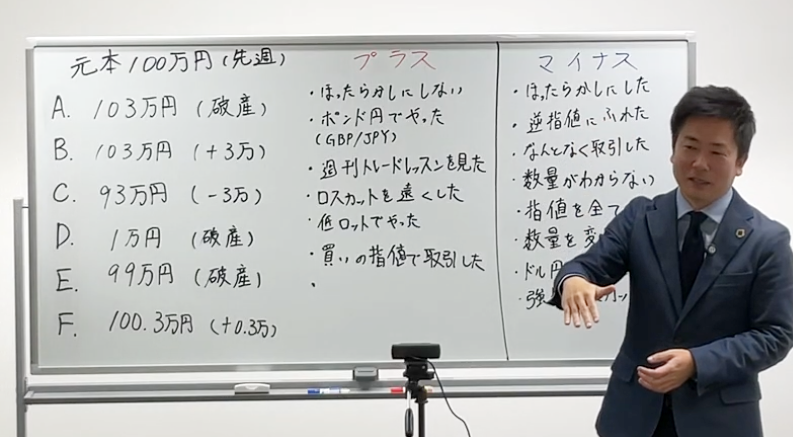 元本100万円(先週)
A. 103万円 (破産)
B. 103万円 (+3万)
C. 93万円 (-3万)
D. 1万円 (破産)
E. 99万円 (破産)
F. 100.3万円 (+0.3万)
プラス
・ほったらかしにしない
・ポンド円でやった
(GBP/JPY)
・週刊トレードレッスンを見た
・ロスカットを遠くした
・低ロットでやった
・買いの指値で取引した
・
マイナス
・ほったらかしにした
・逆指値にふれた
・なんとなく取引した
・数量がわからない
・指値を全て
・数量を変
・ドル円
・強